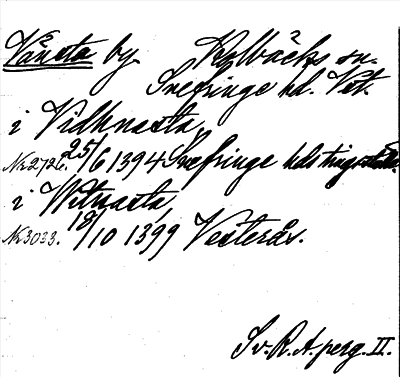 Vånsta by. Kolbäcks sn.
Snefringe hd. Vst.
i Vidhnasta,
Nr 2726. 25/6 1394 Snefringe hds ting
i Witnasta,
Nr 3033. 18/10 1399 Vesterås.
Sv. R. A. perg. II.